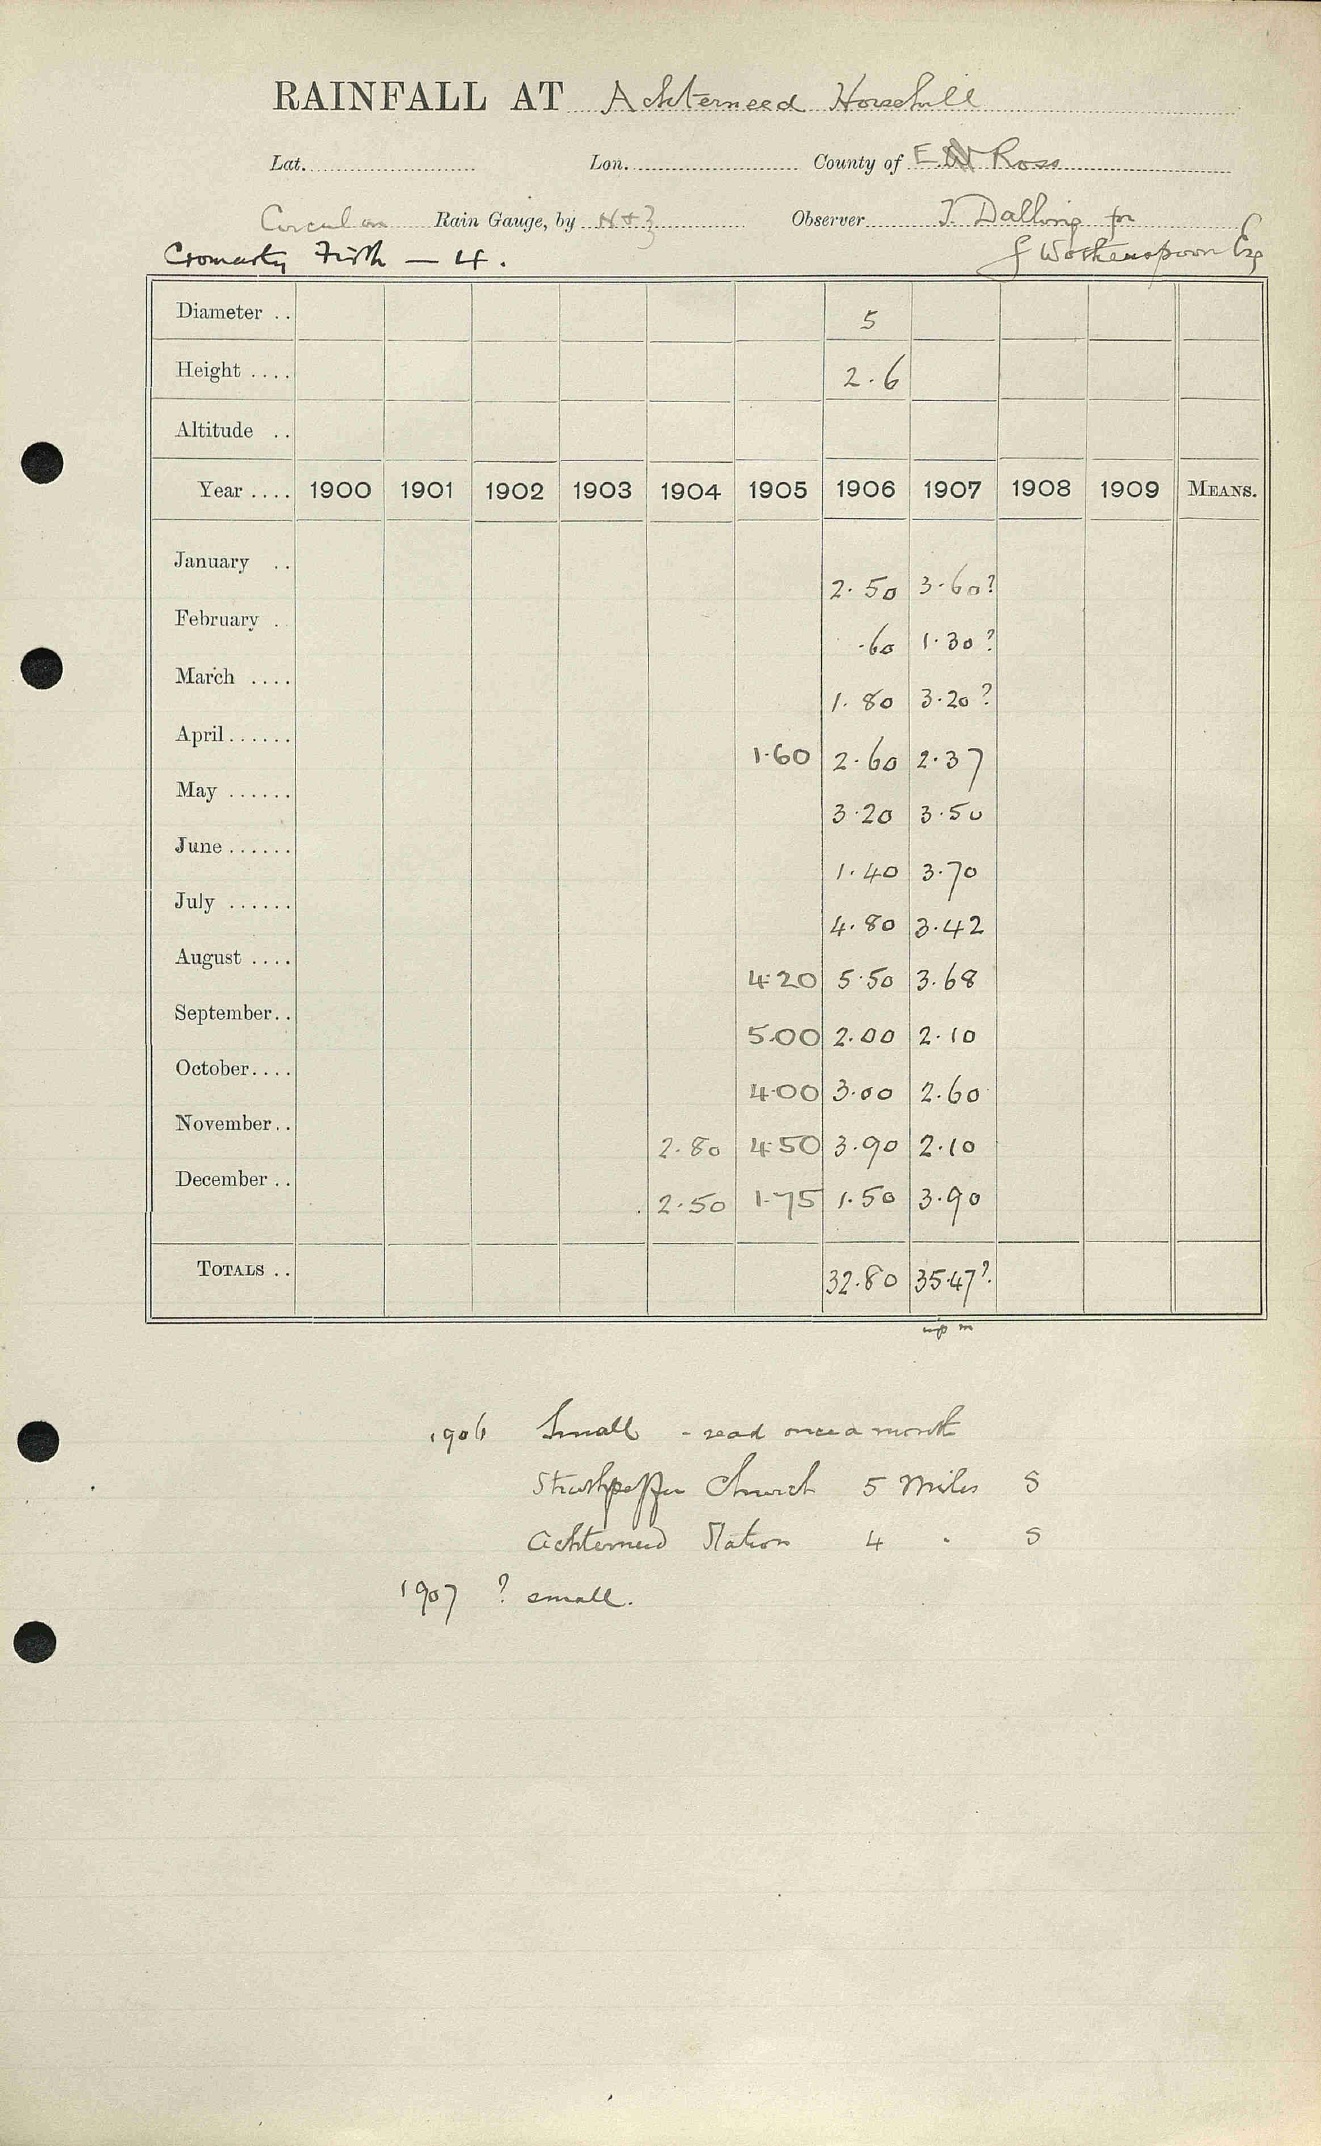 RAINFALL AT Achterneed Horsehill
Lat. Lon. County of E. Ross
Circular Rain Gauge, by N+Z Observer J. Dalling for
Cromarty Firth — 4. J Wotherspoon Esq
Diameter .. 5
Height .... 2.6
Altitude ..
Year .... 1900 1901 1902 1903 1904 1905 1906 1907 1908 1909 MEANS.
January .. 2.50 3.60?
February . .60 1.30?
March .... 1.80 3.20?
April...... 1.60 2.60 2.37
May ...... 3.20 3.50
June ...... 1.40 3.70
July ...... 4.80 3.42
August .... 4.20 5.50 3.68
September.. 5.00 2.00 2.10
October.... 4.00 3.00 2.60
November.. 2.80 4.50 3.90 2.10
December .. 2.50 1.75 1.50 3.90
TOTALS .. 32.80 35.47?
1906 Small - read once a month
Strathpeffer Church 5 Miles S
Achterneed Station 4 " S
1907 ? small.